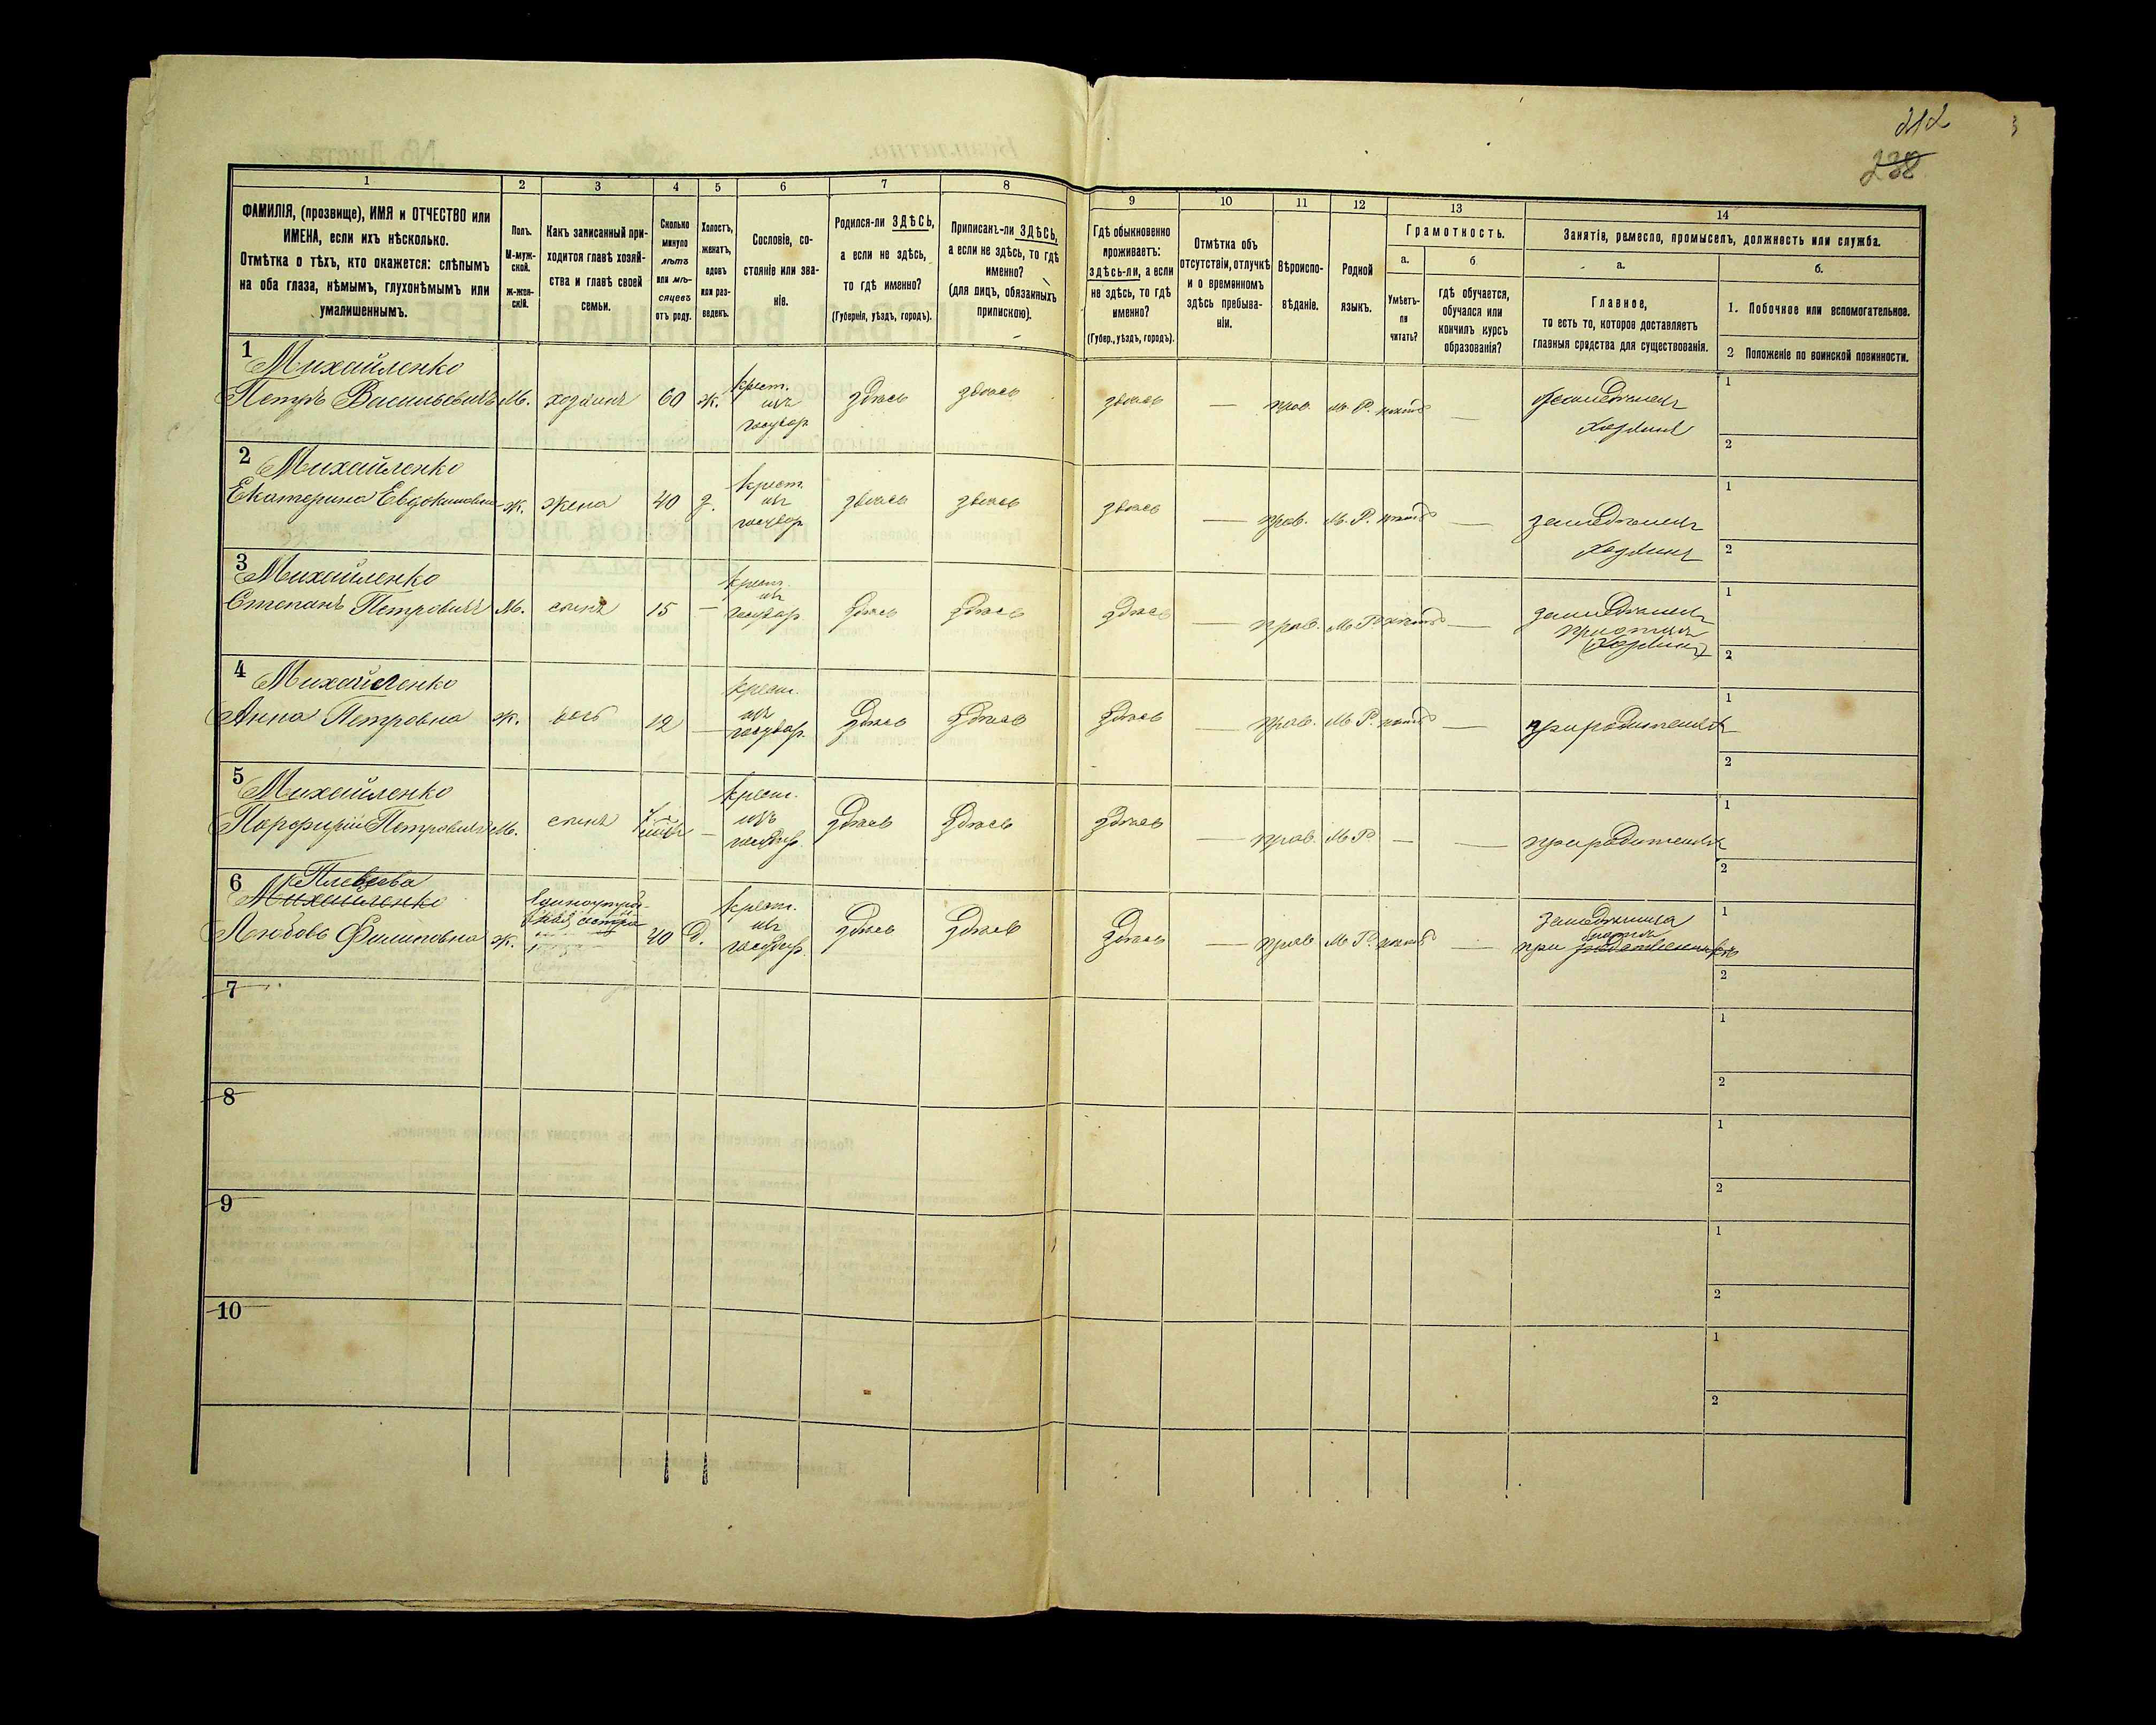 212
238
1
2
3
4
5
6
7
8
9
10
11
12
13
14
ФАМИЛІЯ, (прозвище), ИМЯ и ОТЧЕСТВО или
ИМЕНА, если ихъ нѣсколько.
Отмѣтка о тѣхъ, кто окажется: слѣпымъ
на оба глаза, нѣмымъ, глухонѣмымъ или
умалишеннымъ.
Полъ.
М-муж-
ской.
Ж-жен-
скій.
Какъ записанный при-
ходится главѣ хозяй-
ства и главѣ своей
семьи.
Сколько
минуло
лѣтъ
или мѣ-
сяцевъ
отъ роду.
Холостъ,
женатъ,
вдовъ
или раз-
веденъ.
Сословіе, со-
стояніе или зва-
ніе.
Родился-ли ЗДѢСЬ,
а если не здѣсь,
то гдѣ именно?
(Губернія, уѣздъ, городъ).
Приписанъ-ли ЗДѢСЬ,
а если не здѣсь, то гдѣ
именно?
(для лицъ, обязанныхъ
припискою).
Гдѣ обыкновенно
проживаетъ:
здѣсь-ли, а если
не здѣсь, то гдѣ
именно?
(Губер., уѣздъ, городъ).
Отмѣтка объ
отсутствіи, отлучкѣ
и о временномъ
здѣсь пребыва-
ніи.
Вѣроиспо-
вѣданіе.
Родной
языкъ.
Грамотность.
а.
Умѣетъ-
ли
читать?
б
гдѣ обучается,
обучался или
кончилъ курсъ
образованія?
Занятія, ремесло, промыселъ, должность или служба.
а.
Главное,
то есть то, которое доставляетъ
главныя средства для существованія.
б.
1. Побочное или вспомогательное.
2 Положеніе по воинской повинности.
1
Михайленко
Петръ Васильевичъ
М.
хозяинъ
60
ж.
крест.
изъ
государ.
здѣсь
здѣсь
здѣсь
—
прав.
М. Р.
—
хозяинъ
1
2
2
Михайленко
Екатерина Евдокимовна
ж.
жена
40
з.
крест.
изъ
государ.
здѣсь
здѣсь
здѣсь
—
прав.
М. Р.
—
хозяинъ
1
2
3
Михайленко
Степанъ Петровичъ
М.
сынъ
15
—
крест.
изъ
государ.
здѣсь
здѣсь
здѣсь
—
прав.
М. Р.
—
(хозяинъ)
1
2
4
Михайленко
Анна Петровна
ж.
дочь
12
—
крест.
изъ
государ.
здѣсь
здѣсь
здѣсь
—
прав.
М. Р.
—
при родителяхъ
1
2
5
Михайленко
Порфирій Петровичъ
М.
сынъ
—
крест.
изъ
государ.
здѣсь
здѣсь
здѣсь
—
прав.
М. Р.
—
—
при родителяхъ
1
2
6
Михайленко
Любовь Филиповна
ж.
сестра
40
д.
крест.
изъ
государ.
здѣсь
здѣсь
здѣсь
—
прав.
М. Р.
—
при
1
2
7
1
2
8
1
2
9
1
2
10
1
2